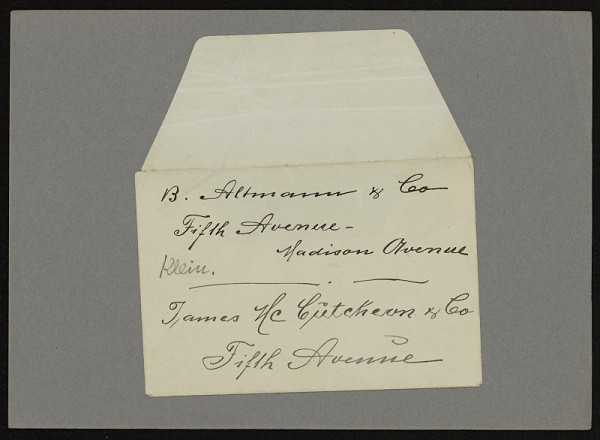 B. Altmann & Co
Fifth Avenue -
Madison Avenue
Klein.
James Mc Cutcheon & Co
Fifth Avenue